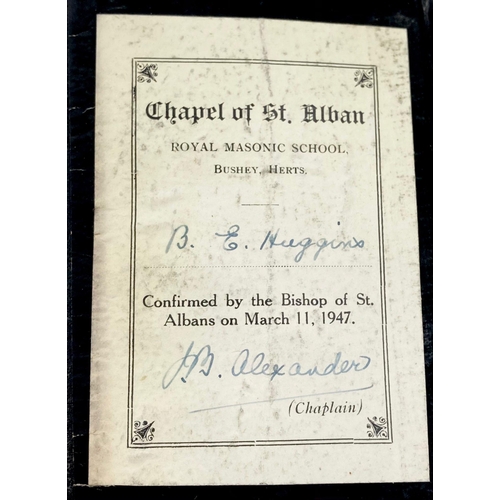 Chapel of St. Alban
ROYAL MASONIC SCHOOL,
BUSHEY, HERTS.
B. E. Huggins
Confirmed by the Bishop of St.
Albans on March 11, 1947.
J.B. Alexander
(Chaplain)